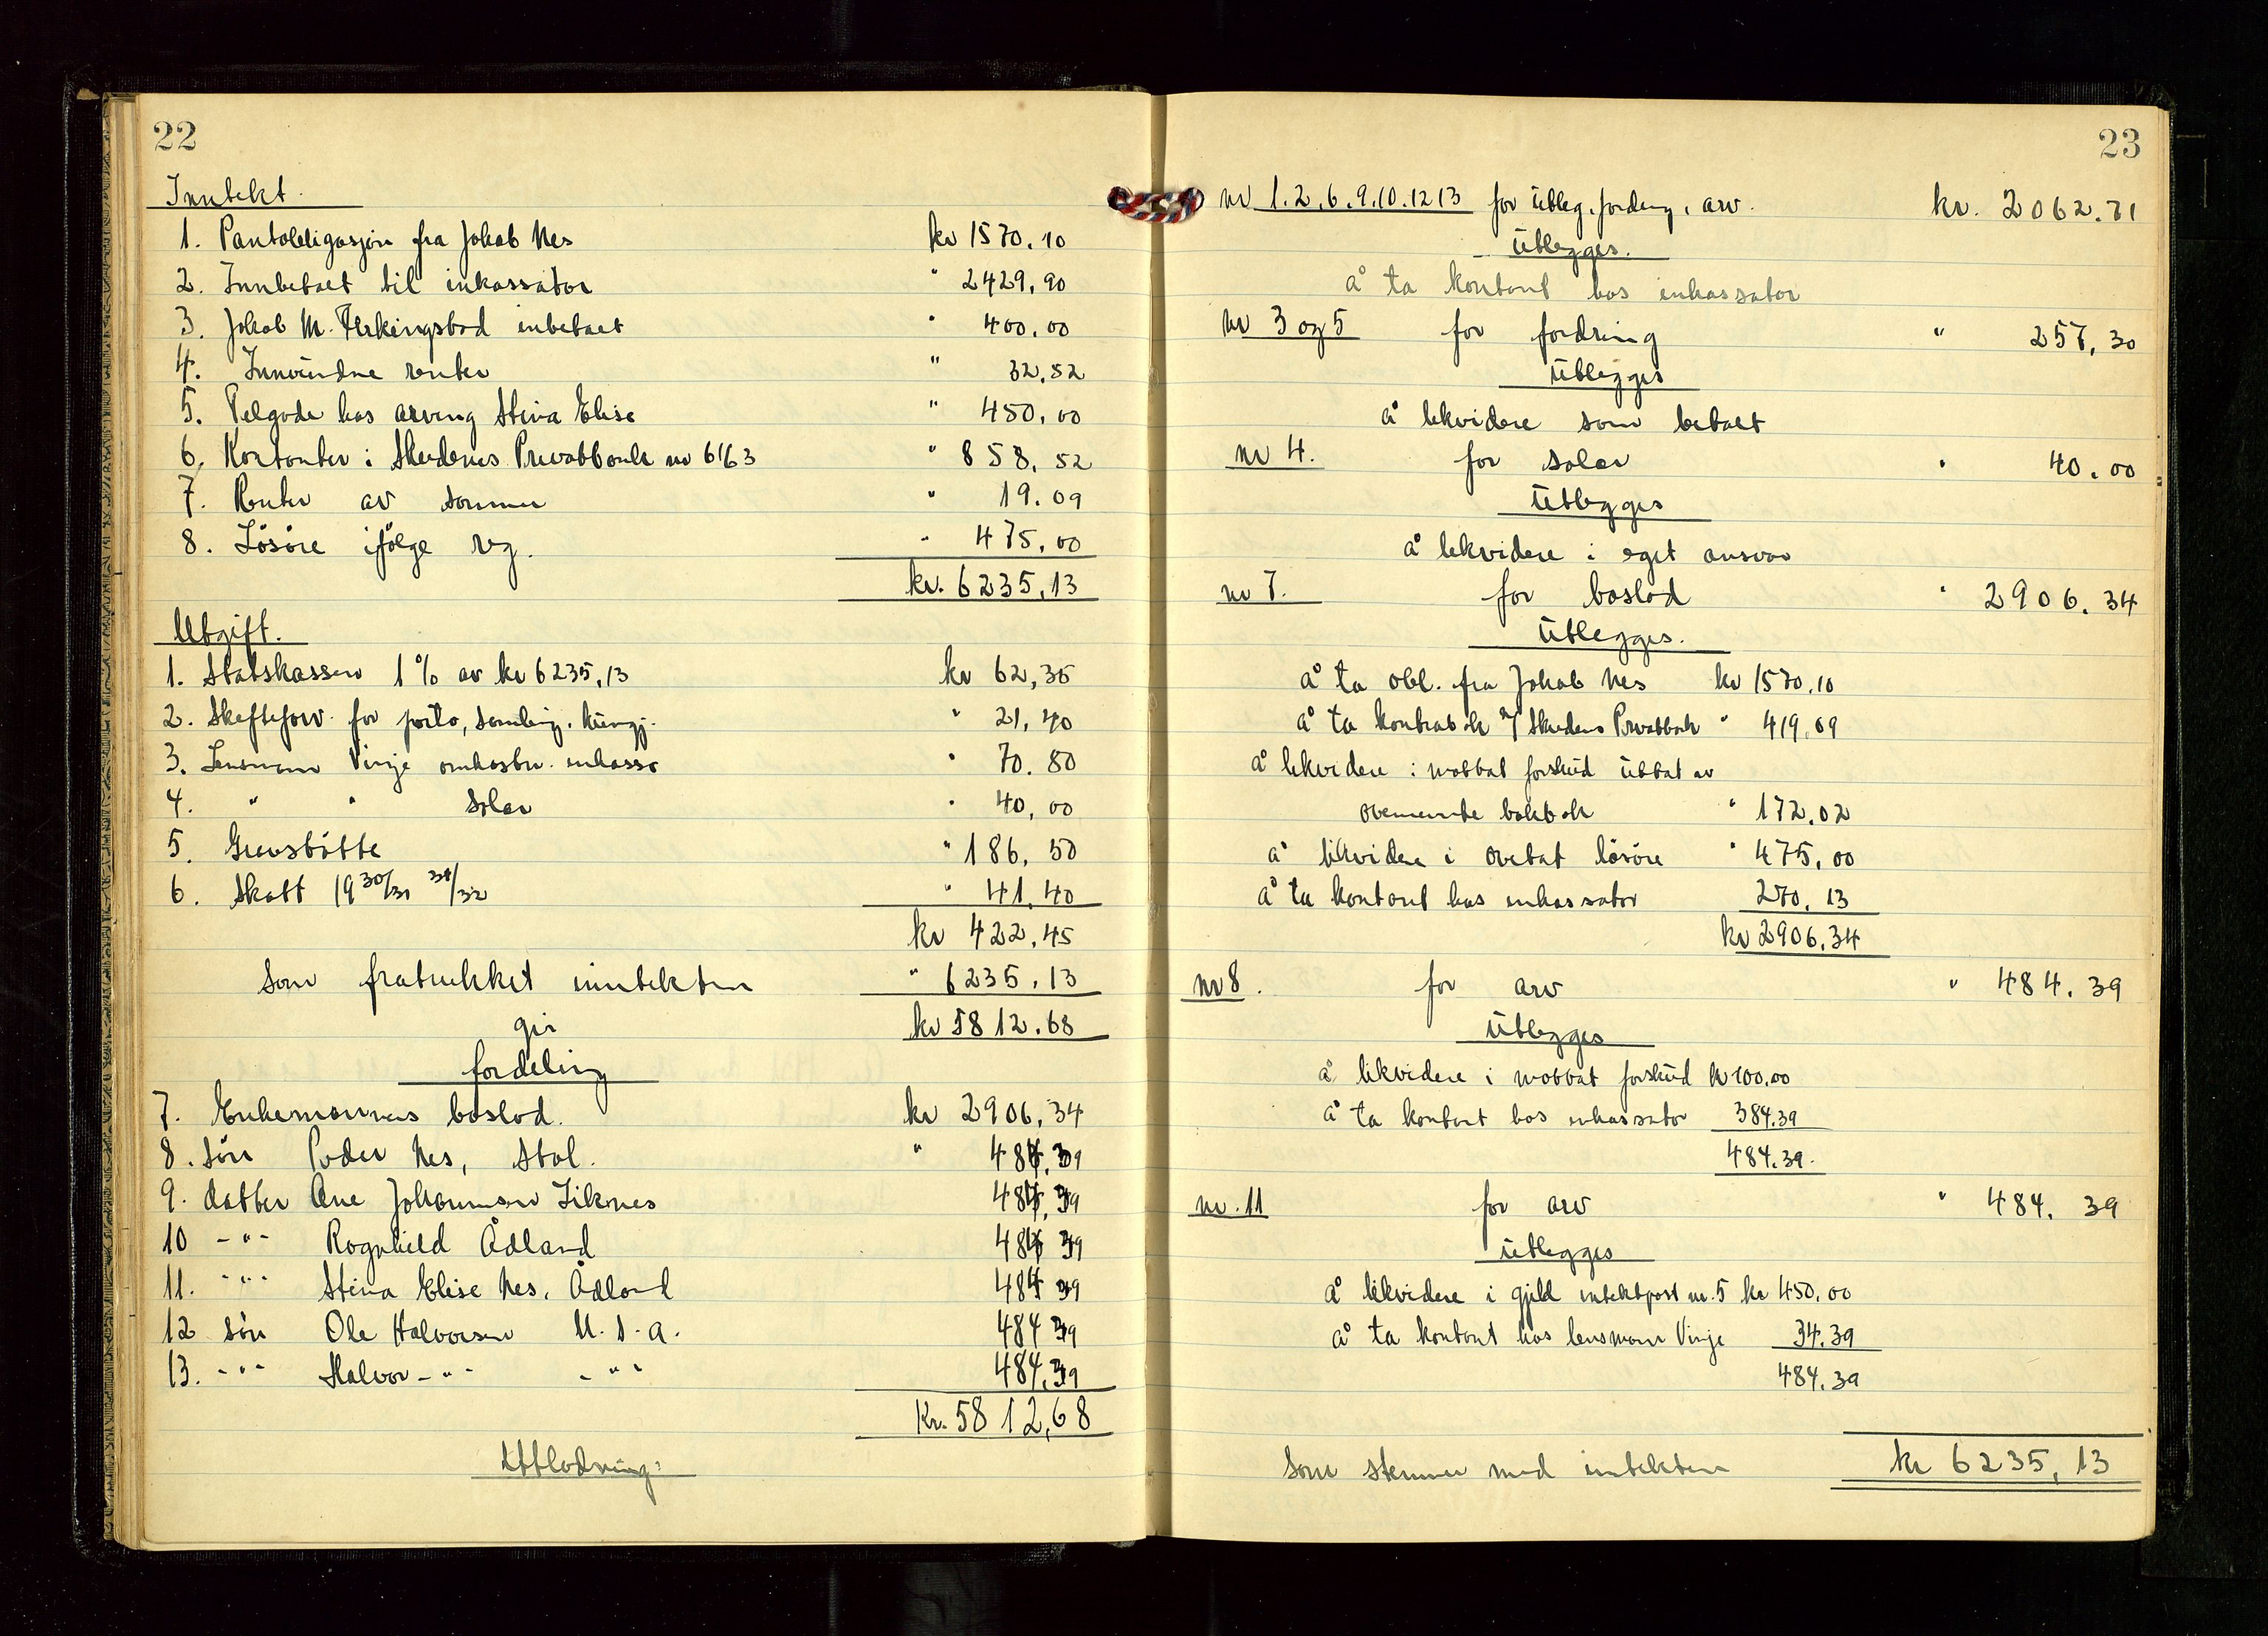 22
Inntekt.
1. Pantobligasjon fra Jakob Nes kr 1570.10
2. Innbetalt til inkassator " 2429,90
3. Jakob M. Ferkingstad inbetalt " 400.00
4. Innvundne renter " 32,52
5. Tilgode hos arving Stina Elise " 450,00
6. Kontanter i Skudenes Privatbank nr 6163 " 858,52
7. Renter av samme " 19.09
8. Lösöre ifölge reg. " 475,00
kr. 6235,13
Utgift.
1. Statskassen 1% av kr 6235,13 kr 62,35
2. Skifteforv. for porto, samling, kungj. " 21,40
3. Lensmann Vinje omkostn. inkasso " 70.80
4. " " Salær " 40,00
5. Gravstötte " 186,50
6. Skatt 1930/31 31/32 " 41,40
kr 422,45
Som fratrukket inntekten " 6235,13
gir kr 5812.68
fordeling
7. Enkemannens boslod. kr 2906,34
8. sön Peder Nes, Stol. " 484,39
9. datter Ane Johannesen Liknes 484,39
10 -"- Ragnhild Ådland 484 39
11. -"- Stina Elise Nes, Ådland 484 39
12 sön Ole Halvorsen U.S.A. 484 39
13. -"- Halvor -"- -"- 484,39
Kr. 5812,68
Utlodning:
23
nr 1.2.6.9.10.12 13 for utleg, fordring, arv. kr. 2062.71
Utlegges.
å ta kontant hos inkassator
nr 3 og 5 for fordring " 257,30
Utlegges
å likvidere som betalt
nr 4. for salær " 40.00
Utlegges
å likvidere i eget ansvar
nr 7. for boslod " 2906.34
Utlegges.
å ta obl. fra Jakob Nes kr 1570,10
å ta kontrabok m/ Skudenes Privatbank " 419,09
å likvidere i mottat forskud uttat av
ovennevnte bankbok " 172.02
å likvidere i overtat lösöre " 475,00
å ta kontant hos inkassator 270,13
kr 2906,34
nr 8. for arv " 484.39
Utlegges
å likvidere i mottat forskud kr 100,00
å ta kontant hos inkassator 384.39
484.39.
nr. 11 for arv " 484. 39
utlegges
å likvidere i gjeld inntektpost nr. 5 kr 450,00
å ta kontant hos lensmann Vinje 34.39
484,39
Som stemmer med inntekten kr 6235,13